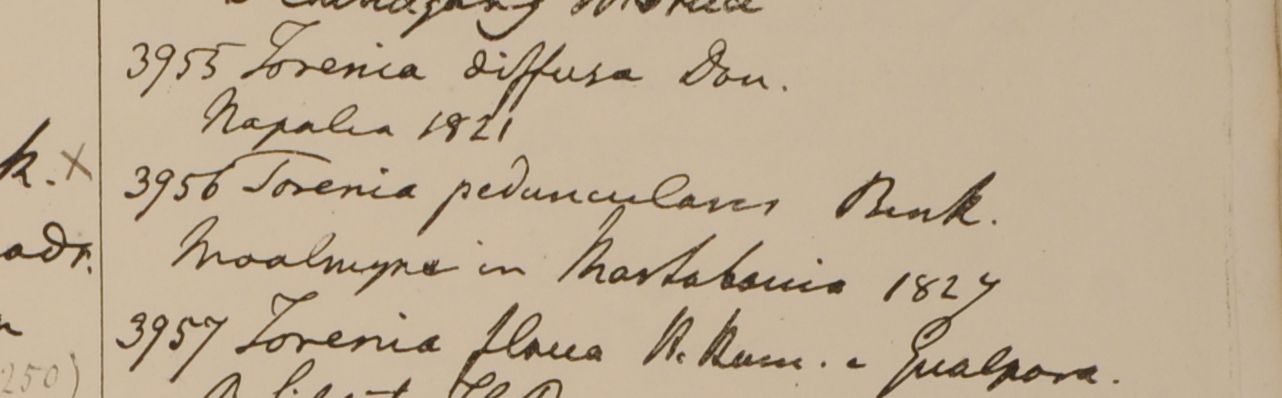 3955 Torenia diffusa Don.
Napalia 1821
k. x
3956 Torenia peduncularis Benth.
adr.
Moalmyne in Martabania 1827
3957 Torenia flava B. Ham. a Gualpara.
250)